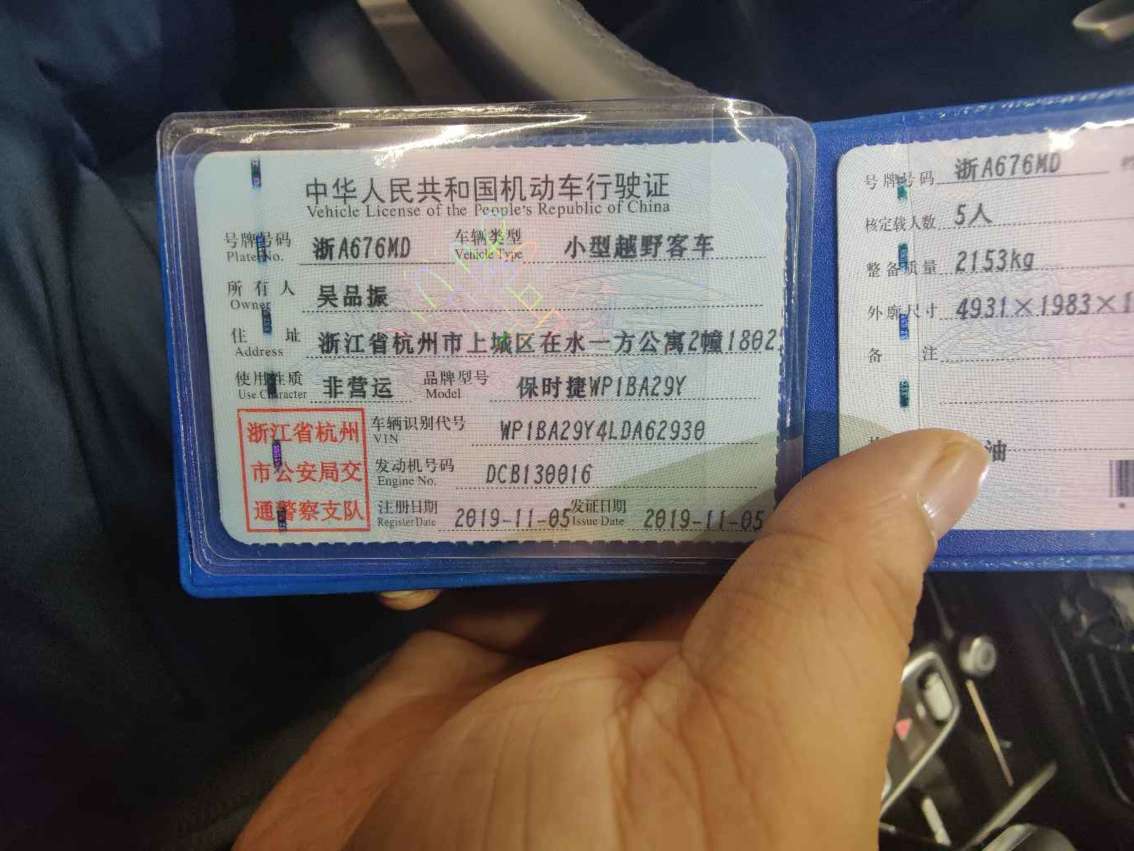 中华人民共和国机动车行驶证
Vehicle License of the People's Republic of China
号牌号码 浙A676MD 车辆类型 小型越野客车
Plate No. Vehicle Type
所有人 吴品振
Owner
住址 浙江省杭州市上城区在水一方公寓2幢1802
Address
使用性质 非营运 品牌型号 保时捷WP1BA29Y
Use Character Model
浙江省杭州
市公安局交
通警察支队
车辆识别代号 WP1BA29Y4LDA62930
VIN
发动机号码 DCB130016
Engine No.
注册日期 2019-11-05 发证日期 2019-11-05
Register Date Issue Date
号牌号码 浙A676MD
核定载人数 5人
整备质量 2153kg
外廓尺寸 4931×1983×1
备注
油